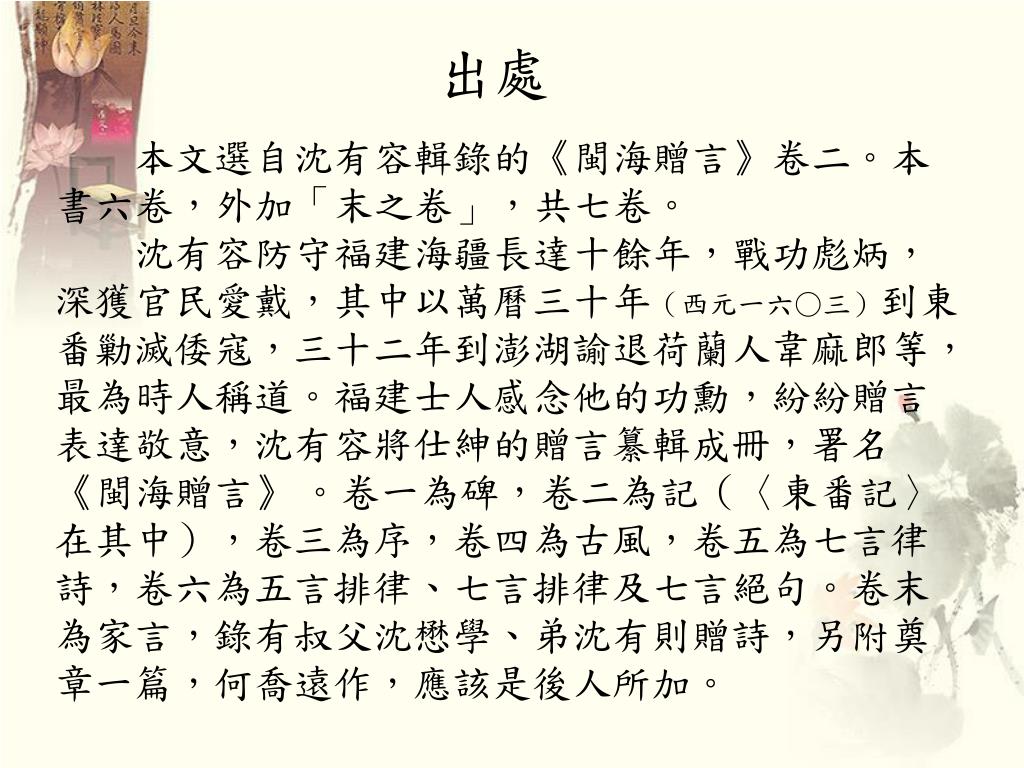 出處
本文選自沈有容輯錄的《閩海贈言》卷二。本
書六卷，外加「末之卷」，共七卷。
沈有容防守福建海疆長達十餘年，戰功彪炳，
深獲官民愛戴，其中以萬曆三十年（西元一六○三）到東
番勦滅倭寇，三十二年到澎湖諭退荷蘭人韋麻郎等，
最為時人稱道。福建士人感念他的功勳，紛紛贈言
表達敬意，沈有容將仕紳的贈言纂輯成冊，署名
《閩海贈言》。卷一為碑，卷二為記（〈東番記〉
在其中），卷三為序，卷四為古風，卷五為七言律
詩，卷六為五言排律、七言排律及七言絕句。卷末
為家言，錄有叔父沈懋學、弟沈有則贈詩，另附奠
章一篇，何喬遠作，應該是後人所加。